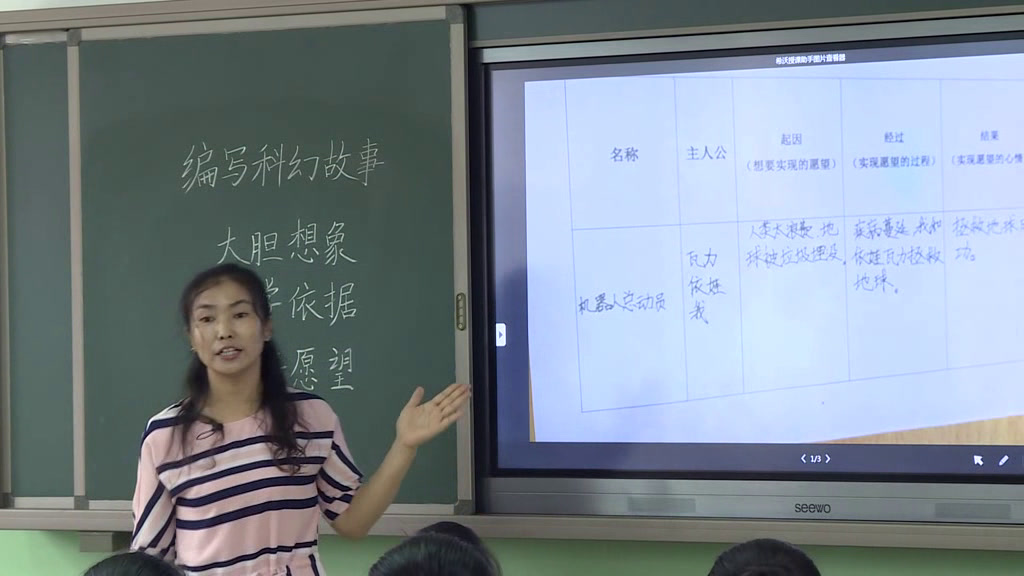 编写科幻故事
大胆想象
学依据
愿望
希沃授课助手图片查看器
名称
主人公
起因
（想要实现的愿望）
经过
（实现愿望的过程）
结果
（实现愿望的心情
机器人总动员
瓦力
依娃
我
人类太浪费 地
球被垃圾埋没。
疾病蔓延 我和
依娃瓦力拯救
地球。
拯救地球
功。
1/3
seewo